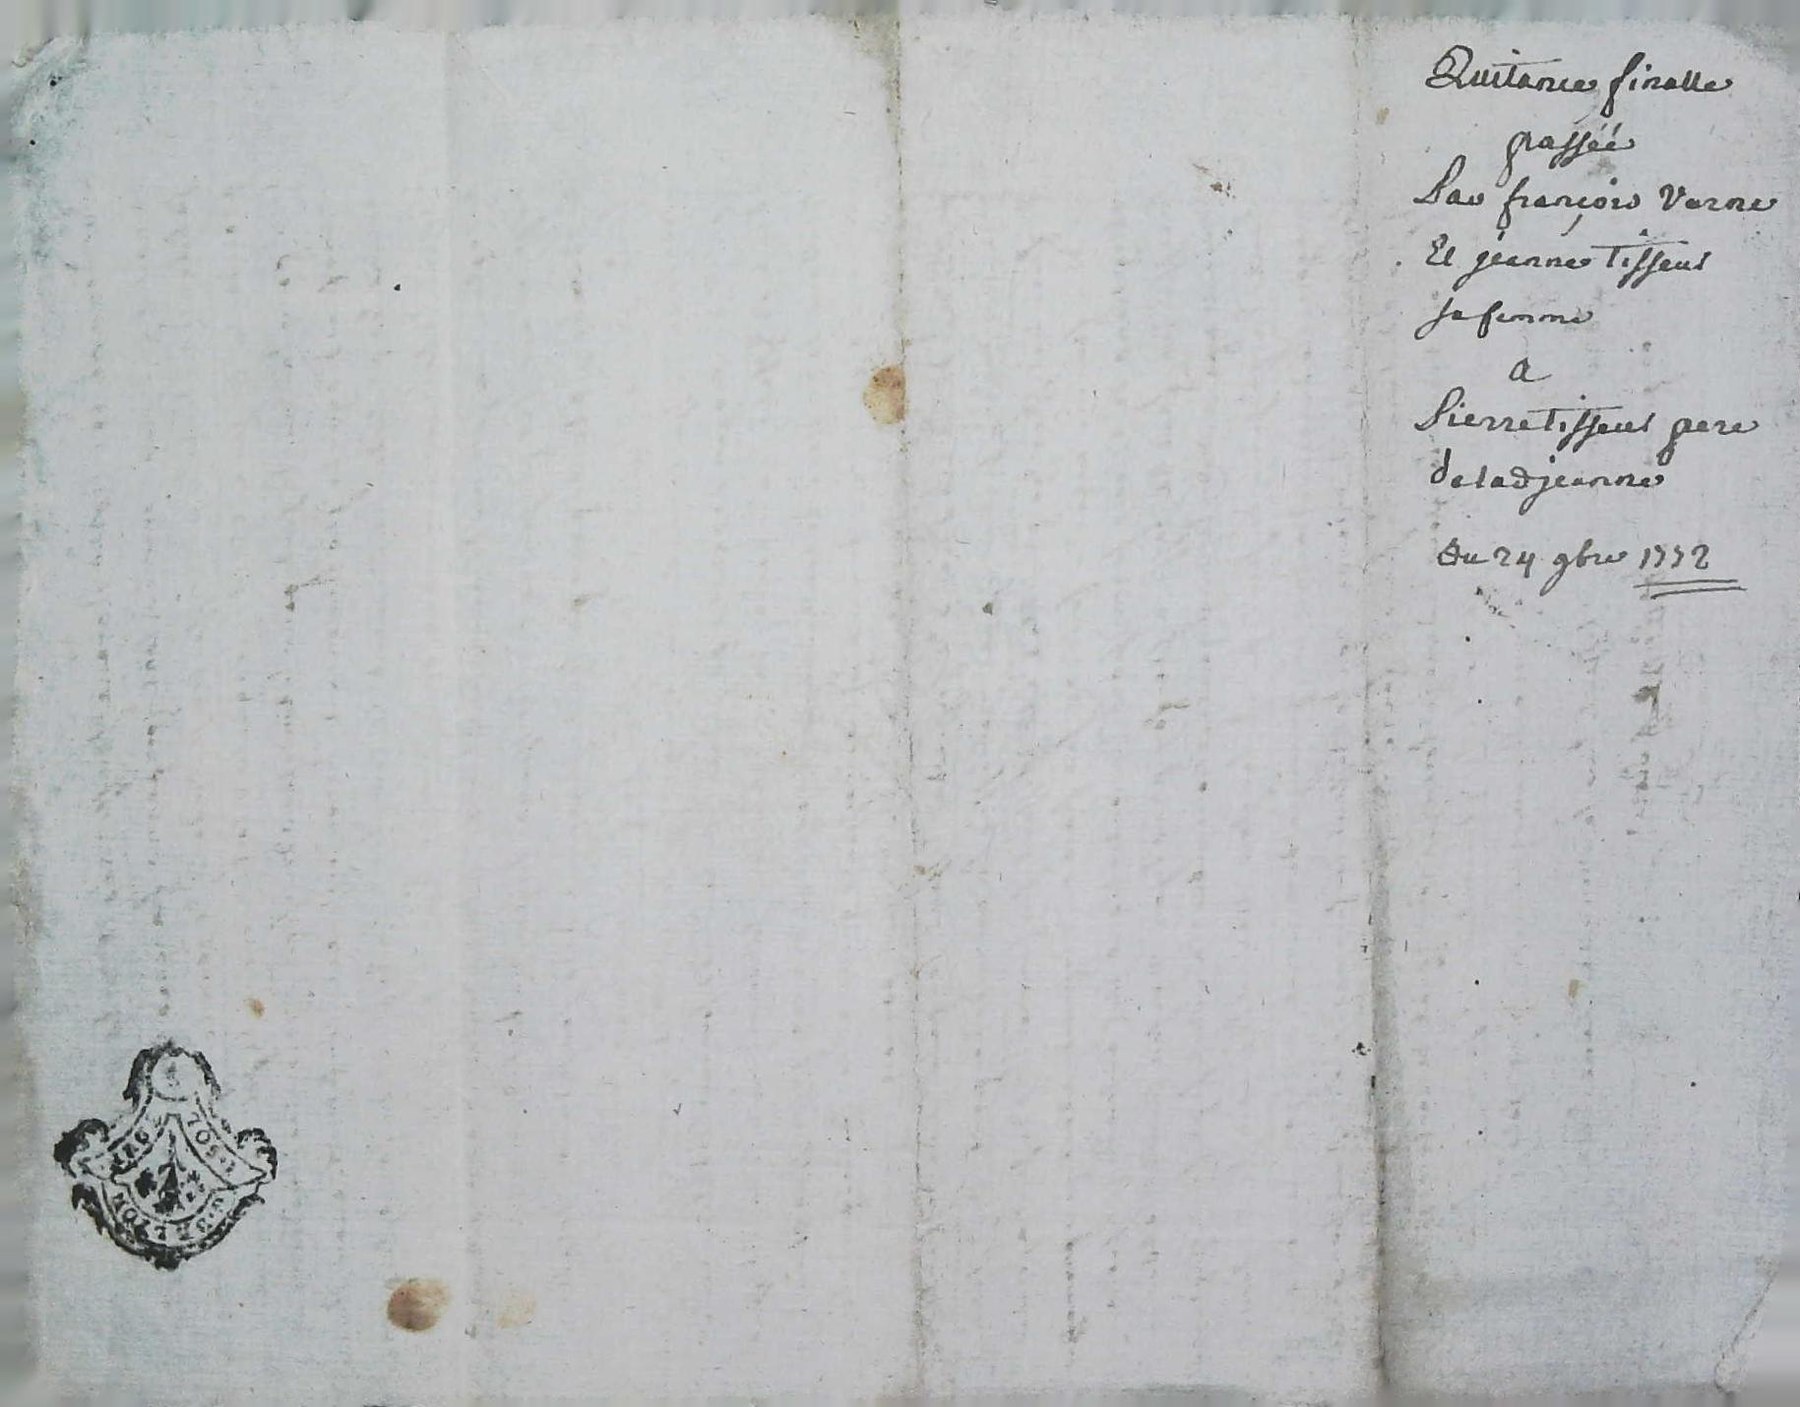 Quitance finalle
passéé
Par françois Varne
Et jeanne tisseur
sa femme
a
Pierre tisseur pere
de lad jeanne
Du 24 9bre 1772